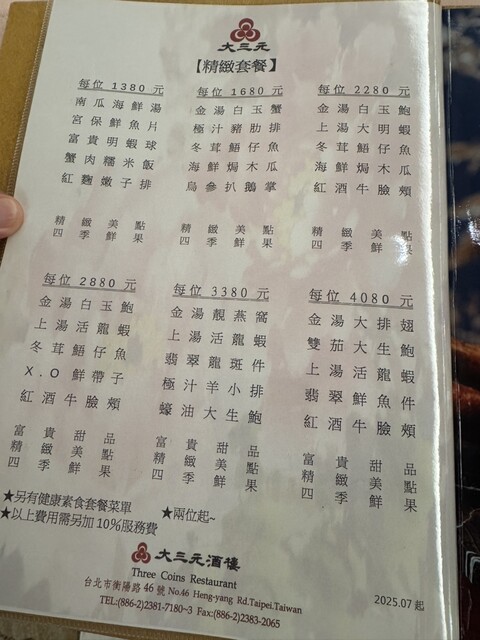 大三元
【精緻套餐】
每位 1380 元
南瓜海鮮湯
宮保鮮魚片
富貴明蝦球
蟹肉糯米飯
紅麴嫩子排
精緻美點
四季鮮果
每位 1680 元
金湯白玉蟹
極汁豬肋排
冬茸鮞仔魚
海鮮焗木瓜
烏參扒鵝掌
精緻美點
四季鮮果
每位 2280 元
金湯白玉鮑
上湯大明蝦
冬茸鮞仔魚
海鮮焗木瓜
紅酒牛臉頰
精緻美點
四季鮮果
每位 2880 元
金湯白玉鮑
上湯活龍蝦
冬茸鮞仔魚
X.O鮮帶子
紅酒牛臉頰
富貴甜品
精緻美點
四季鮮果
每位 3380 元
金湯靚燕窩
上湯活龍蝦
翡翠龍斑件
極汁羊小排
蠔油大生鮑
富貴甜品
精緻美點
四季鮮果
每位 4080 元
金湯大排翅
雙茄大生鮑
上湯活龍蝦
翡翠鮮魚件
紅酒牛臉頰
富貴甜品
精緻美點
四季鮮果
★另有健康素食套餐菜單
★兩位起~
★以上費用需另加 10%服務費
大三元酒樓
Three Coins Restaurant
台北市衡陽路 46 號 No.46 Heng-yang Rd.Taipei.Taiwan
TEL:(886-2)2381-7180~3 Fax:(886-2)2383-2065
2025.07 起